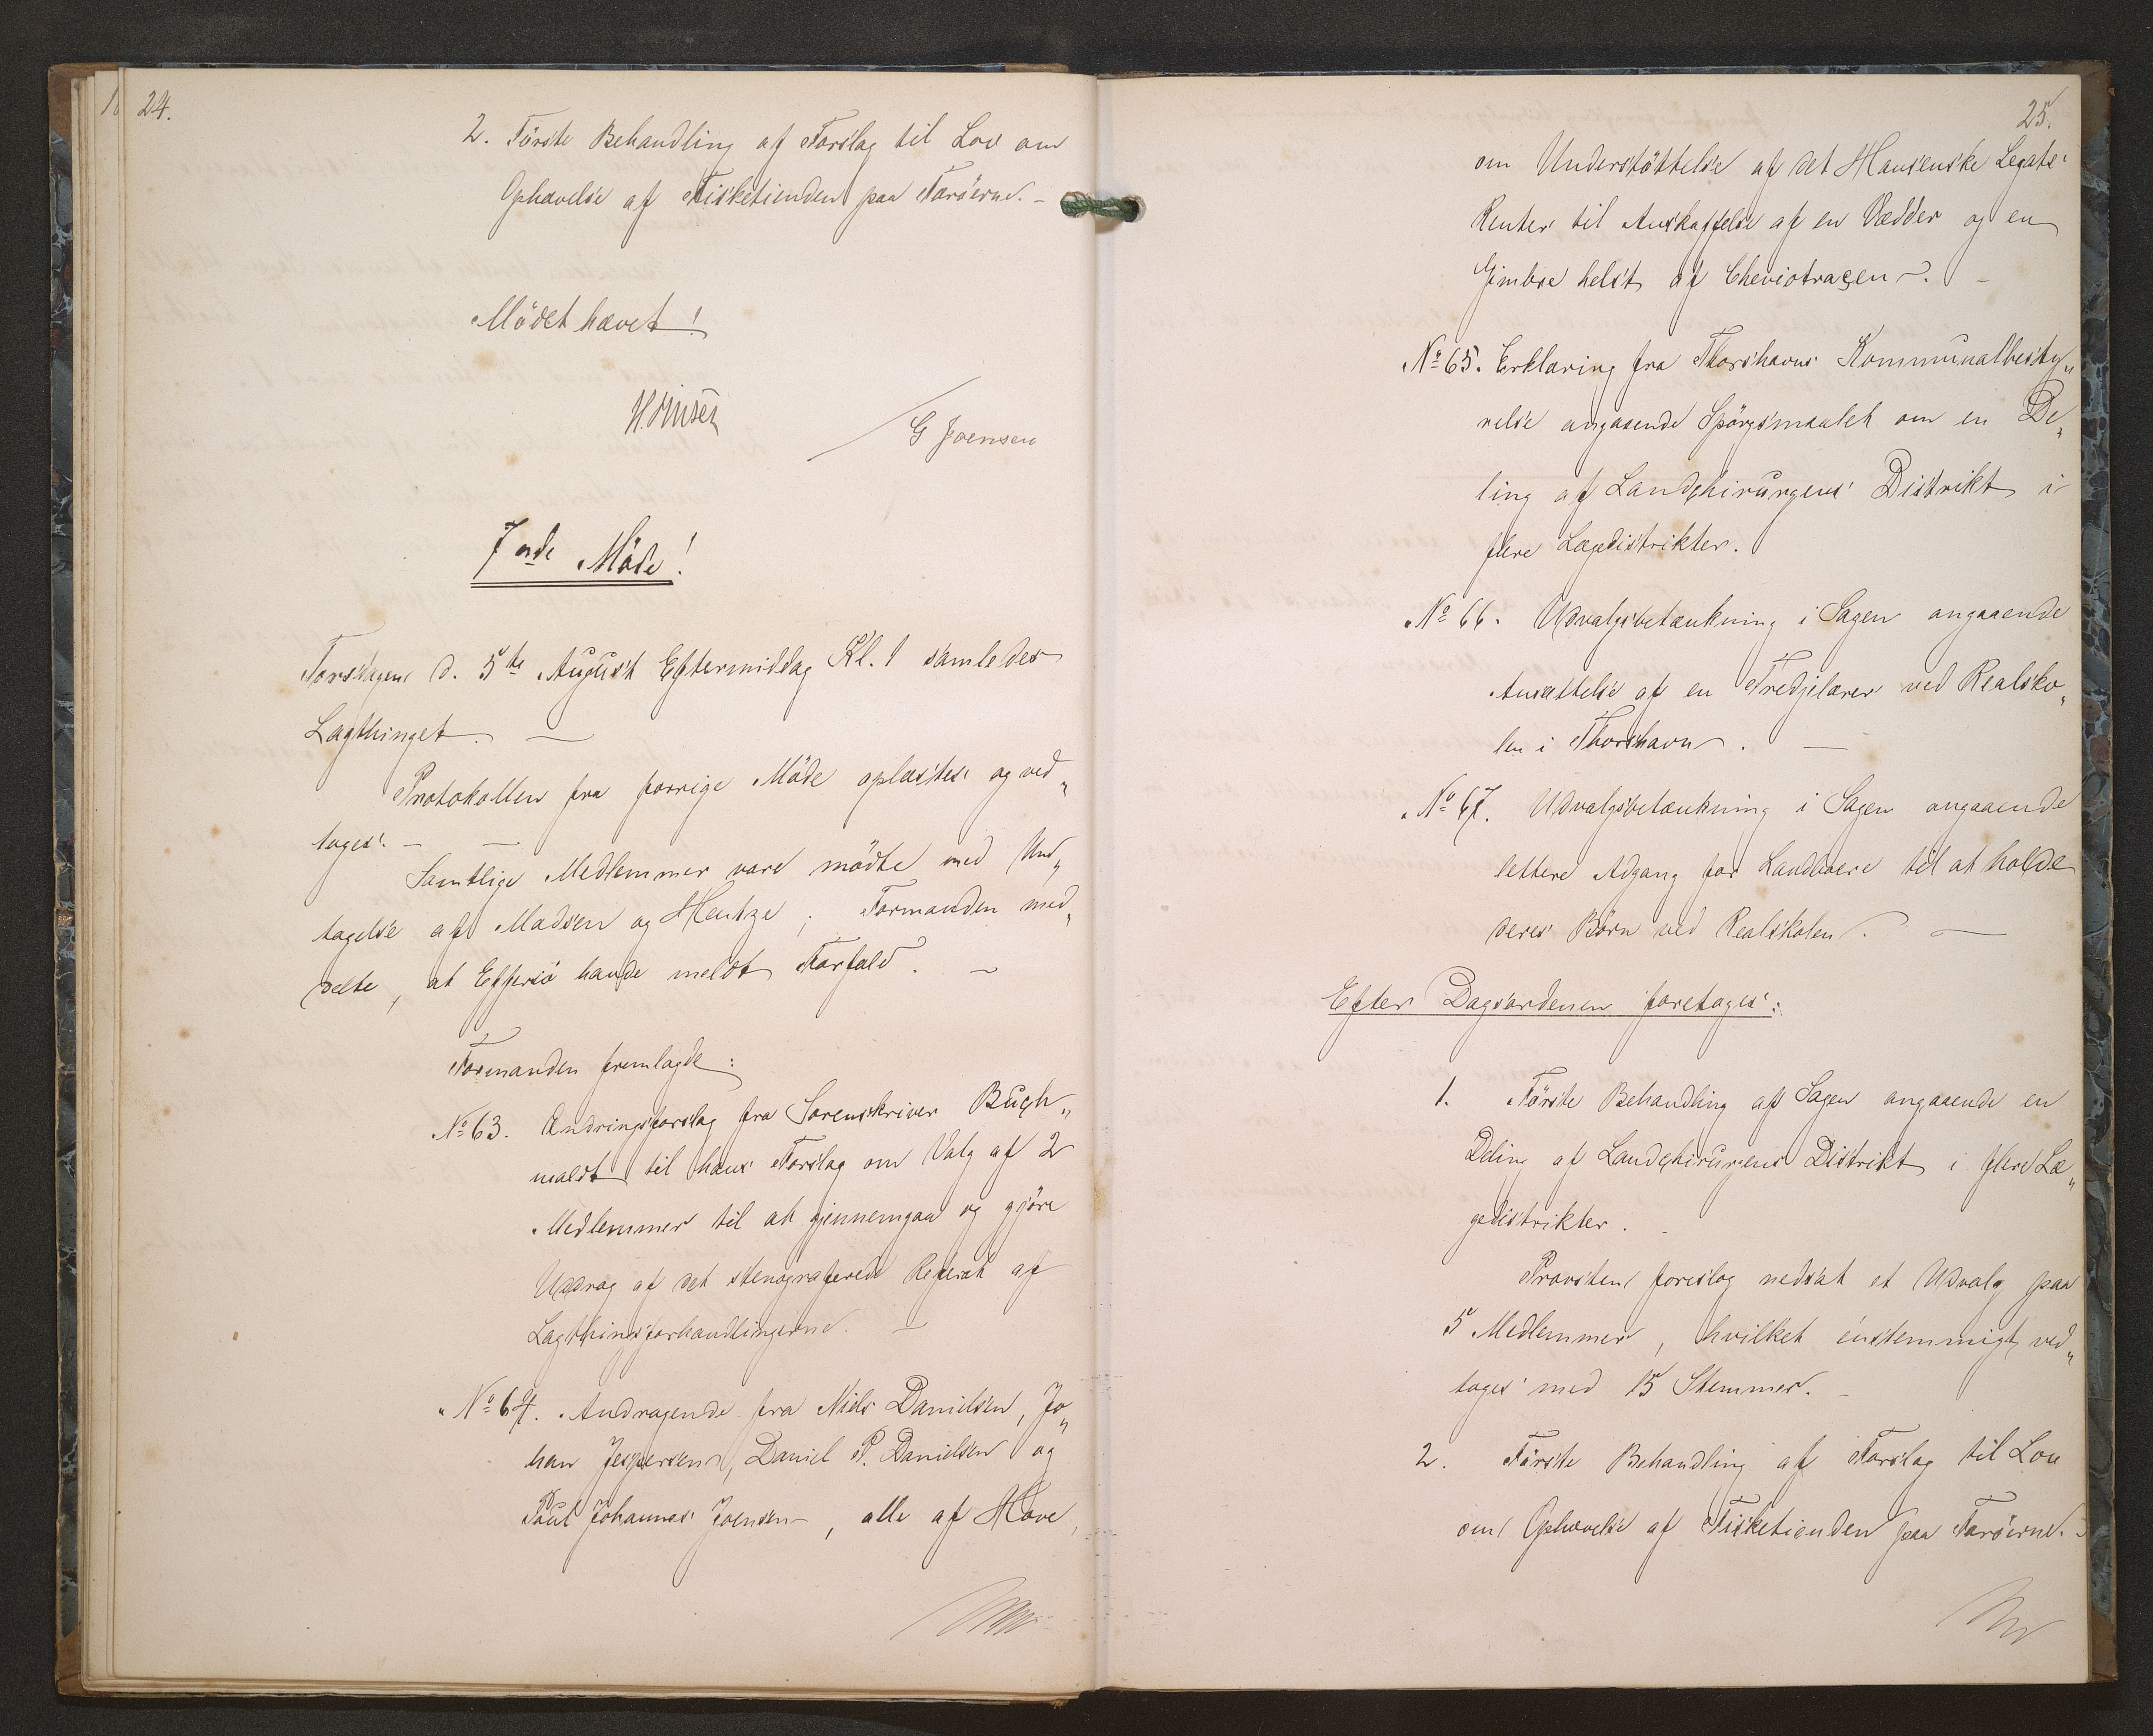 24.
2. Förste Behandling af Forslag til Lov om
Ophævelse af Fisketienden paa Færöerne. –
Mödet hævet!
G Joensen
7nde Möde!
Torsdagen d. 5te August Eftermiddag Kl. 1 samledes
Lagthinget. —
Protokollen fra forrige Möde oplæstes og ved„
toges. – —
Samtlige Medlemmer vare mödte med Und„
tagelse af Madsen og Hentze; Formanden med„
delte, at Effersö havde meldt Forfald. –
Formanden fremlagde:
No 63. Ændringsforslag fra Sorenskriver Buch„
waldt til hans Forslag om Valg af 2
Medlemmer til at gjennemgaa og gjöre
Uddrag af det stenograferede Referat af
Lagthingsforhandlingerne. —
„ No 64. Andragende fra Niels Danielsen, Jo„
han Jespersen, Daniel P. Danielsen og
Poul Johannes Joensen, alle af Hove,
25.
om Understöttelse af det Hansenske Legats
Renter til Anskaffelse af en Vædder og en
Gimbre helst af Cheviotracen. –
No 65. Erklæring fra Thorshavns Kommunalbesty„
relse angaaende Spörgsmaalet om en De„
ling af Landchirurgens Distrikt i
flere Lægedistrikter.
„No 66. Udvalgsbetænkning i Sagen angaaende
Ansættelse af en Tredjelærer ved Realsko„
len i Thorshavn. —
„No 67. Udvalgsbetænkning i Sagen angaaende
lettere Adgang for Landboere til at holde
deres Börn ved Realskolen. —
Efter Dagsordenen foretoges:
1. Förste Behandling af Sagen angaaende en
Deling af Landchirurgens Distrikt i flere Læ„
gedistrikter.
Provsten foreslog nedsat et Udvalg paa
5 Medlemmer, hvilket énstemmigt ved„
toges med 15 Stemmer. –
2. Förste Behandling af Forslag til Lov
om Ophævelse af Fisketienden paa Færöerne. –